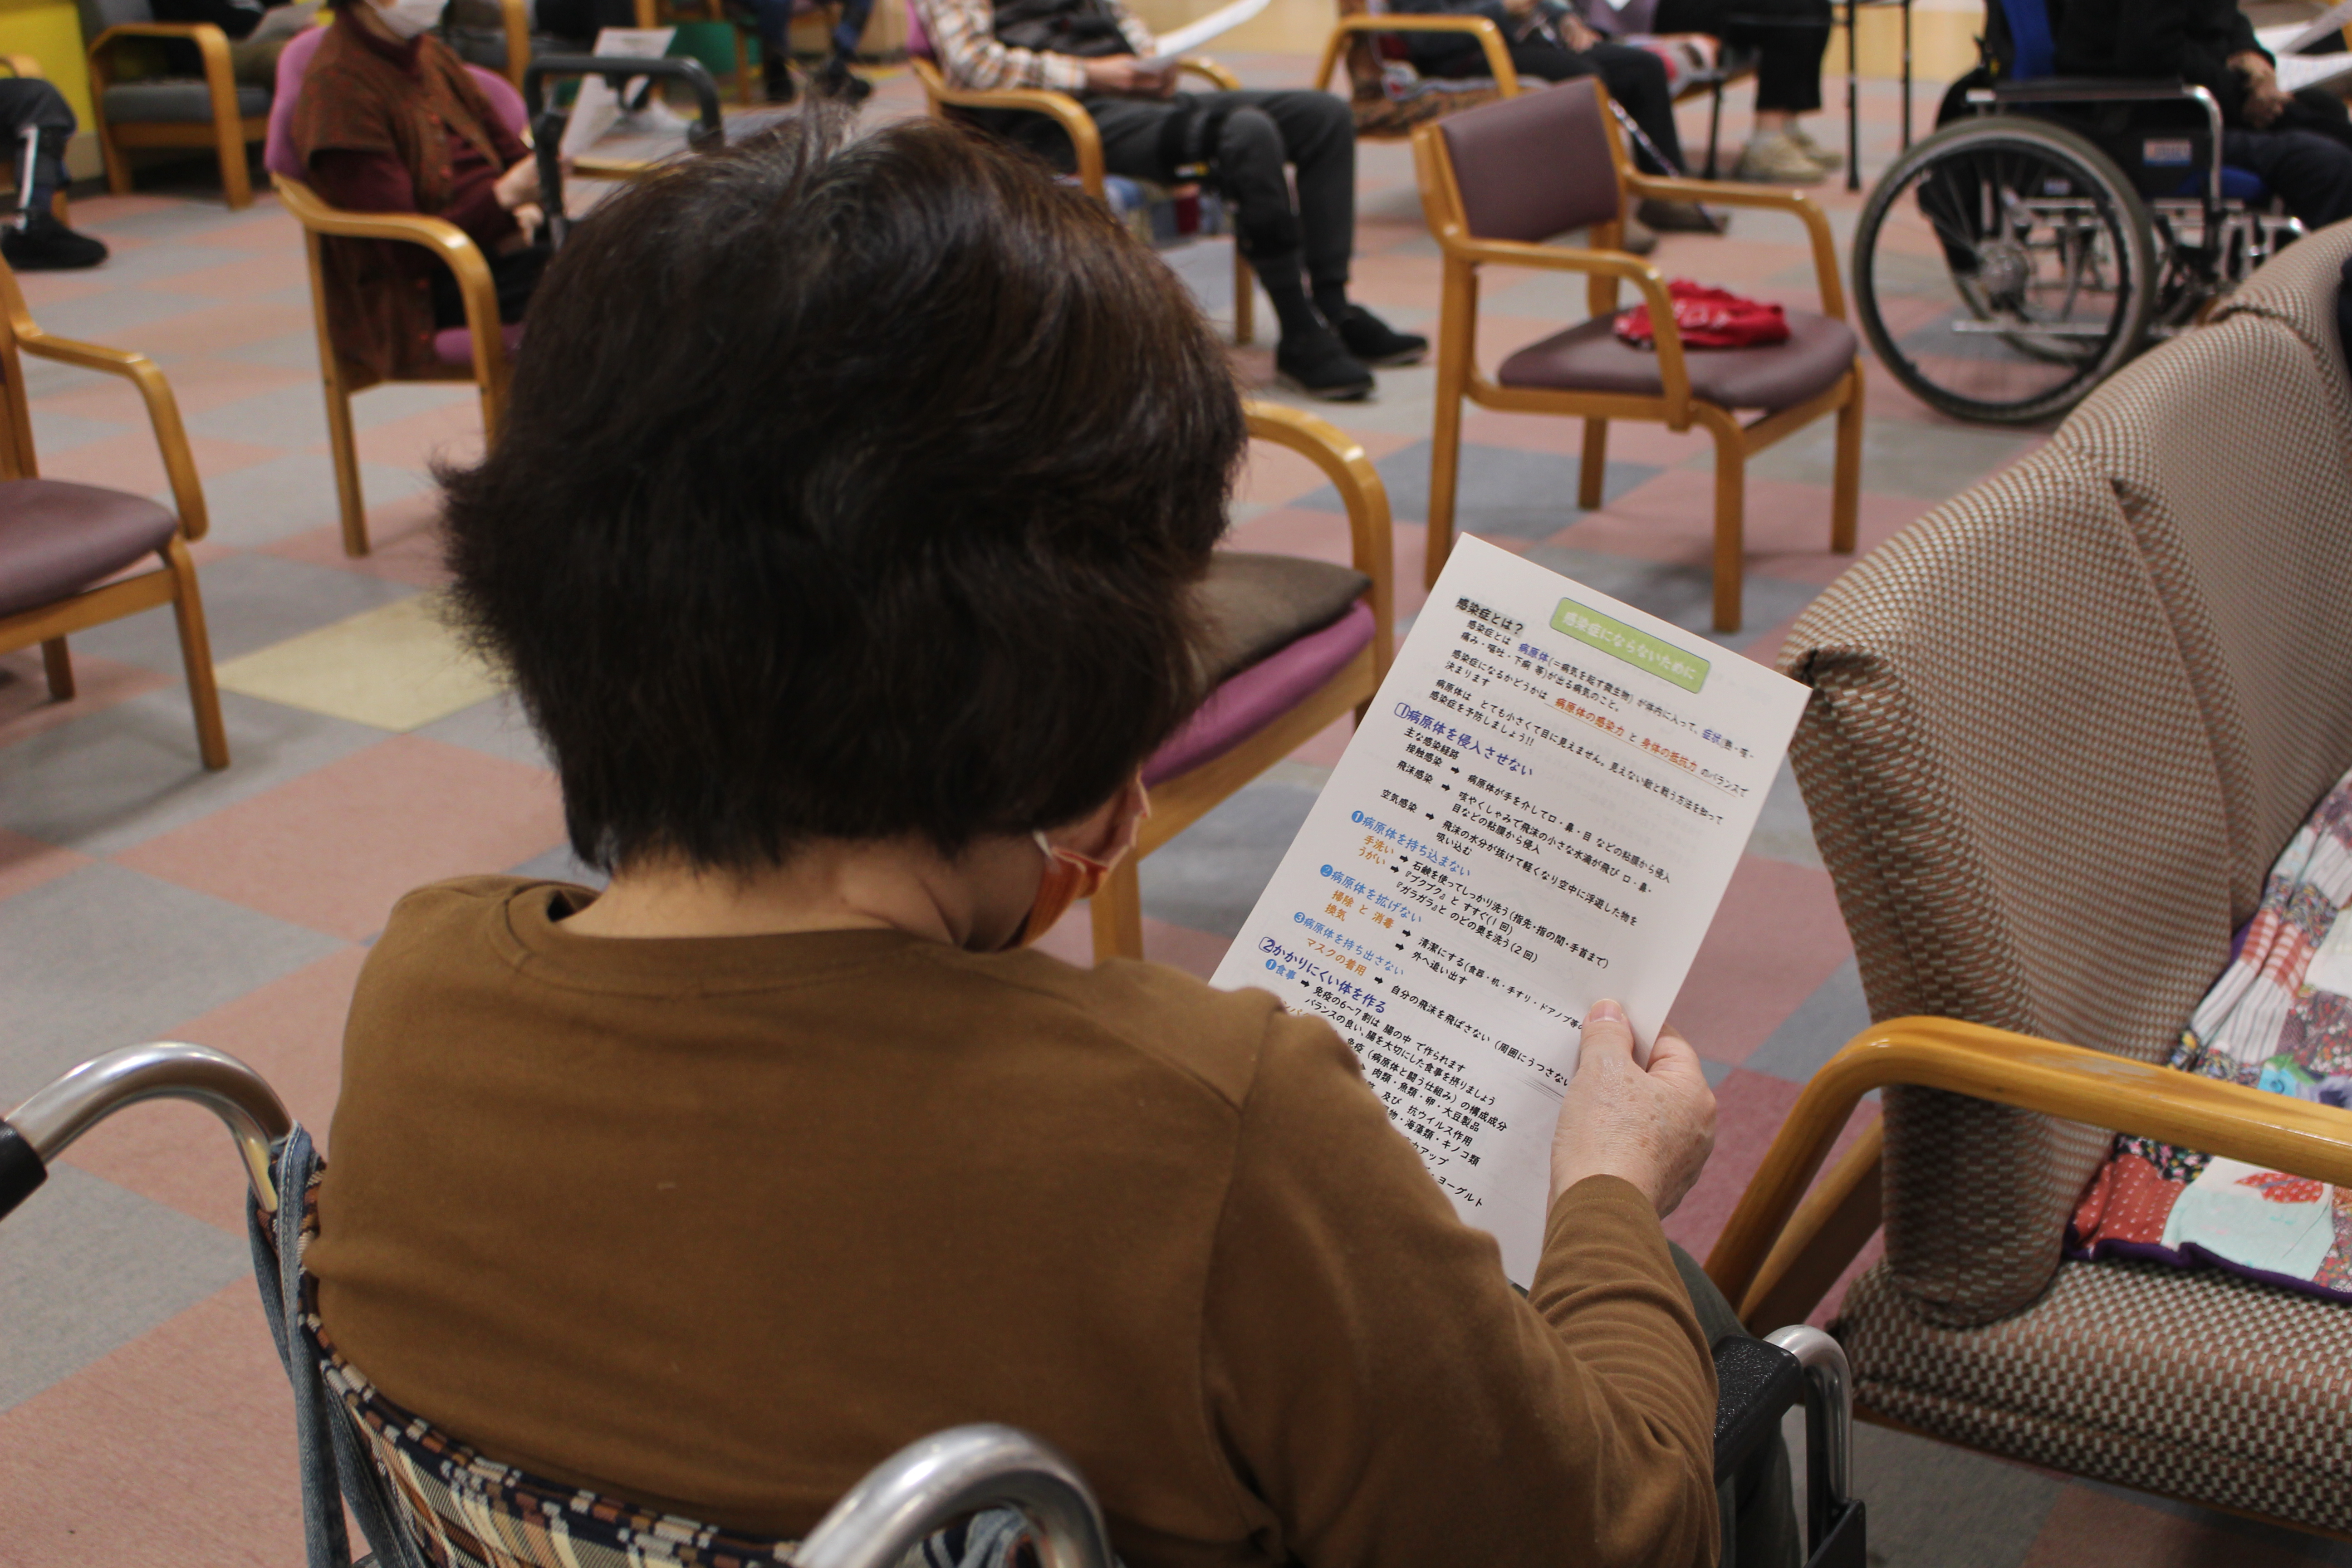 感染症にならないために
感染症とは？
感染症とは 病原体(=病気を起す微生物) が体内に入って、症状(熱・咳・
痛み・嘔吐・下痢 等)が出る病気のこと。
感染症になるかどうかは 病原体の感染力 と 身体の抵抗力 のバランスで
決まります
病原体は とても小さくて目に見えません。見えない敵と戦う方法を知って
感染症を予防しましょう!!
1病原体を侵入させない
主な感染経路
接触感染 ➡ 病原体が手を介して口・鼻・目 などの粘膜から侵入
飛沫感染 ➡ 咳やくしゃみで飛沫の小さな水滴が飛び 口・鼻・
目などの粘膜から侵入
空気感染 ➡ 飛沫の水分が抜けて軽くなり空中に浮遊した物を
吸い込む
❶病原体を持ち込まない
手洗い ➡ 石鹸を使ってしっかり洗う(指先・指の間・手首まで)
うがい ➡ 『ブクブク』と すすぐ(1回)
『ガラガラ』と のどの奥を洗う(2回)
❷病原体を拡げない
掃除 と 消毒 ➡ 清潔にする(食器・机・手すり・ドアノブ等
換気 ➡ 外へ追い出す
❸病原体を持ち出さない
マスクの着用 ➡ 自分の飛沫を飛ばさない (周囲にうつさない
2かかりにくい体を作る
❶食事 ➡ 免疫の6~7割は 腸の中 で作られます
バランスの良い、腸を大切にした食事を摂りましょう
免疫 (病原体と闘う仕組み) の構成成分
肉類・魚類・卵・大豆製品
及び 抗ウイルス作用
・海藻類・キノコ類
アップ
・ヨーグルト